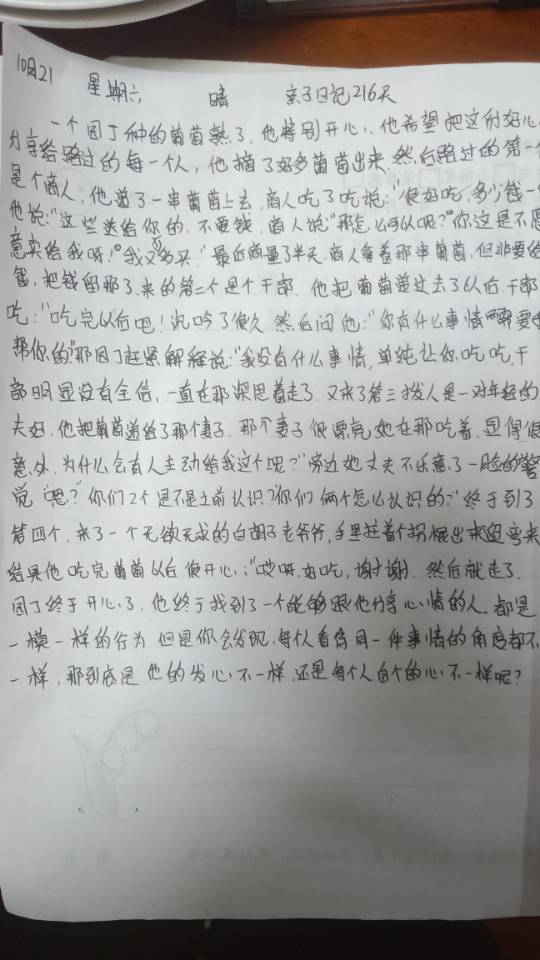 10月21 星期六 晴 亲子日记216天
一个园丁种的葡萄熟了，他特别开心，他希望把这份好心
分享给路过的每一个人，他摘了好多葡萄出来，然后路过的第一个
是个商人，他递了一串葡萄上去，商人吃了吃说："很好吃，多少钱一
他说："这些送给你的，不要钱，商人说"那怎么可以呢？"你这是不愿
意卖给我呀！"我又买，"最后商量了半天，商人拿着那串葡萄，但非要给
钱，把钱留那了，来的第二个是个干部，他把葡萄递过去了以后，干部
吃："吃完以后吧！沉吟了很久，然后问他："你有什么事情需要我
帮你的"那园丁赶紧解释说："我没有什么事情，单纯让你吃吃，干
部明显没有全信，一直在那深思着走了，又来了第三拨人是一对年轻的
夫妇，他把葡萄递给了那个妻子，那个妻子很漂亮她在那吃着，显得很
意外，为什么会有人主动给我这个呢？"旁边她丈夫不乐意了一脸的警
觉"嗯？你们2个是不是之前认识？你们俩个怎么认识的？"终于到了
第四个，来了一个无欲无求的白胡子老爷爷，手里拄着个拐棍出来迎弯来
结果他吃完葡萄以后很开心："哎呀，好吃，谢谢，然后就走了，
园丁终于开心了，他终于找到了一个能够跟他分享心情的人，都是
一模一样的行为但是你会发现，每个人看待同一件事情的角度都不
一样，那到底是他的发心不一样，还是每个人自个的心不一样呢？